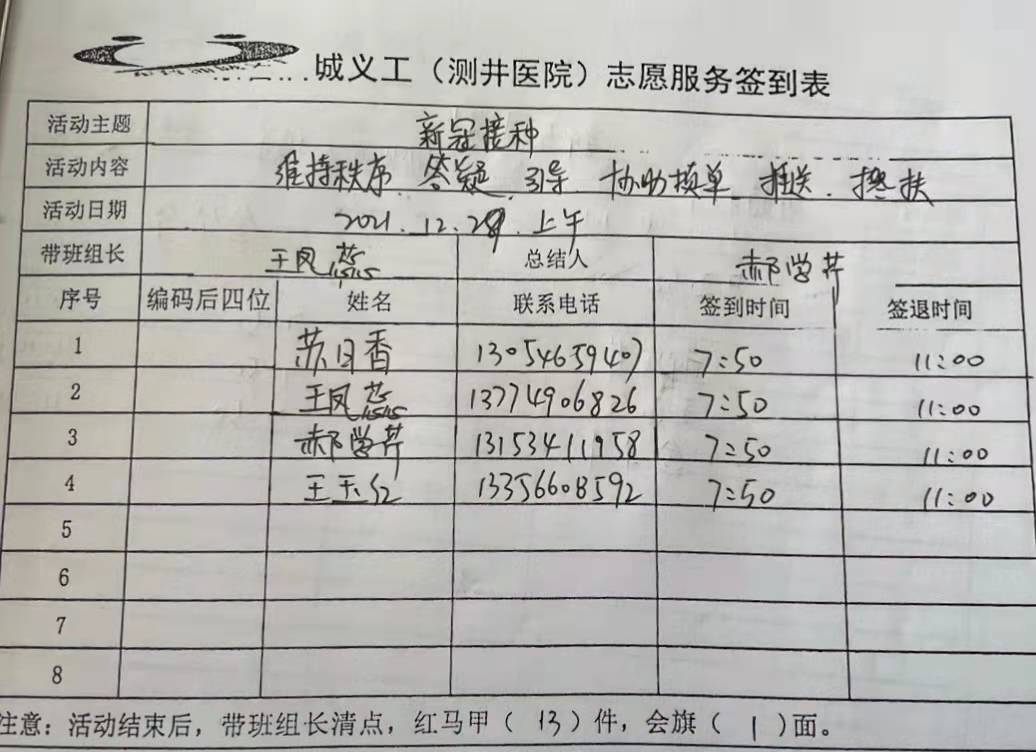 城义工（测井医院）志愿服务签到表
活动主题 新冠接种
活动内容 维持秩序、答疑、引导、协助填单、推送、搀扶
活动日期 2021.12.28.上午
带班组长 王凤蕊 总结人 郝学芹
序号 编码后四位 姓名 联系电话 签到时间 签退时间
1 苏日香 13054659407 7:50 11:00
2 王凤蕊 13774906826 7:50 11:00
3 郝学芹 13153411958 7:50 11:00
4 王玉红 13356608592 7:50 11:00
5
6
7
8
注意：活动结束后，带班组长清点，红马甲（13）件，会旗（1）面。